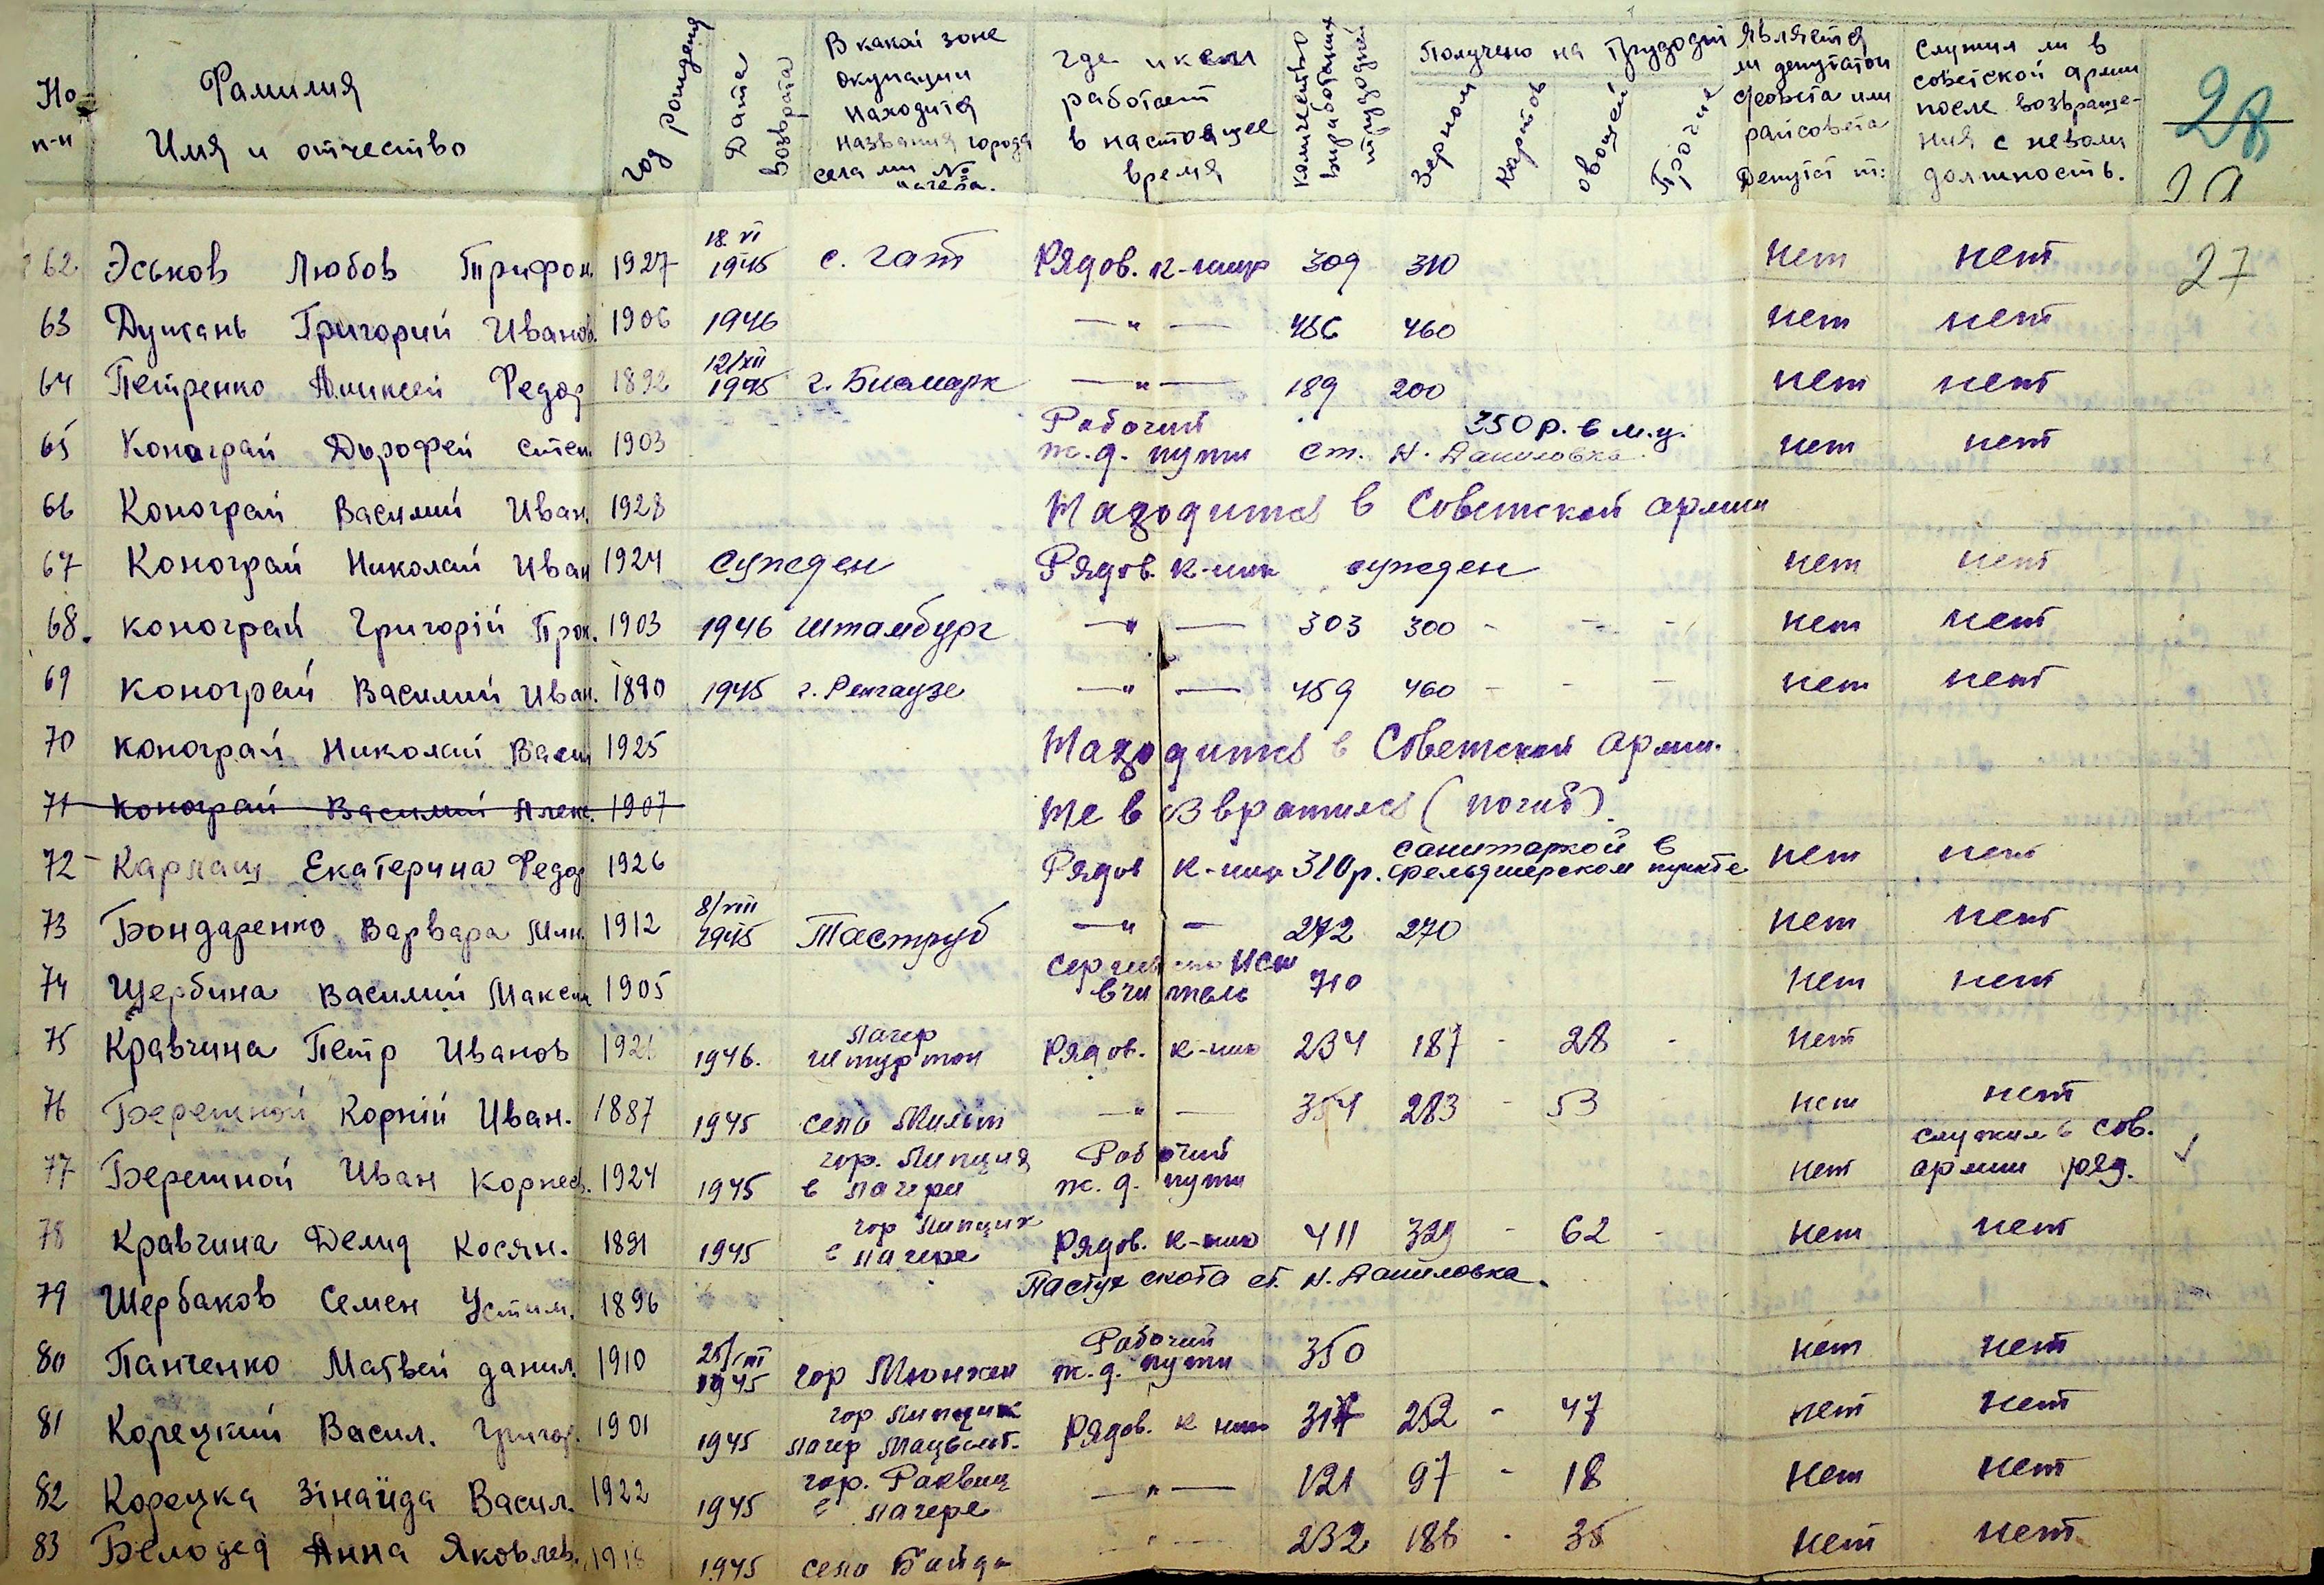 Но п-п Фамилия Имя и отчество год рождения Дата возврата В какой зоне окупации находится названия города села ли № лагеря. где и кем работает в настоящее время количество выработаних трудодней Получено на трудодни Зерном Картоф овощей Прочие является ли депутатом сельсовета или райсовета Служил ли в советской армии после возвращения с неволи должность. 28
62 Эськов Любов Трифон. 1927 18 VI 1945 с. Гат Рядов. к-ник 309 310 нет нет 27
63 Дужань Григорий Иванов. 1906 1946 —"— 456 460 нет нет
64 Петренко Аликсей Федор 1892 12/XII 1945 г. Бисмарк —"— 189 200 нет нет
65 Конограй Дорофей Степ. 1903 Рабочий ж.д. пути ст. Н. Даниловка. 350 р. в м-ц. нет нет
66 Конограй Василий Иван. 1928 Находится в Советской армии
67 Конограй Николай Иван 1924 сужден Рядов. к-ник сужден нет нет
68. Конограй Григорій Прок. 1903 1946 Штамбург —"— 303 300 - - - нет нет
69 Конограй Василий Иван. 1890 1945 г. Ренгаузе —"— 459 460 - - - нет нет
70 Конограй Николай Васил 1925 Находится в Советской Армии.
71 Конограй Василий Алекс. 1907 Не возвратился (погиб).
72 Карпащ Екатерина Федор 1926 Рядов к-ник 310 р. санитаркой в фельдшерском пункте нет нет
73 Бондаренко Варвара 1912 8/VIII 1945 Таструб —"— 272 270 нет нет
74 Щербина Василий Максим 1905 вчитель 710 нет нет
75 Кравчина Петр Иванов 1945 1946. лагер Штуртон Рядов. к-ник 234 187 - 28 - нет
76 Бережной Корній Иван. 1887 1945 село Мильт —"— 354 283 - 53 нет нет
77 Бережной Иван Корнеев. 1924 1945 гор. Липция в лагери Рабочий ж.д. пути нет служил в Сов. армии ряд. ✓
78 Кравчина Демид Косян. 1891 1945 гор Липцик в лагере Рядов. к-ник 411 329 - 62 - нет нет
79 Шербаков Семен Устим. 1896 Пастух скота ст. Н. Даниловка.
80 Панченко Матвей данил. 1910 1945 гор Мюнхен Рабочий ж.д. пути 350 нет нет
81 Корецкий Васил. Григор. 1901 1945 гор Липцик лагер Рядов. к ник 314 252 - 47 нет нет
82 Корецка Зінаїда Васил. 1922 1945 гор. Раквиц в лагере —"— 121 97 - 18 нет нет
83 Белодед Анна Яковлев. 1918 1945 село Байда —"— 232 186 - 35 нет нет